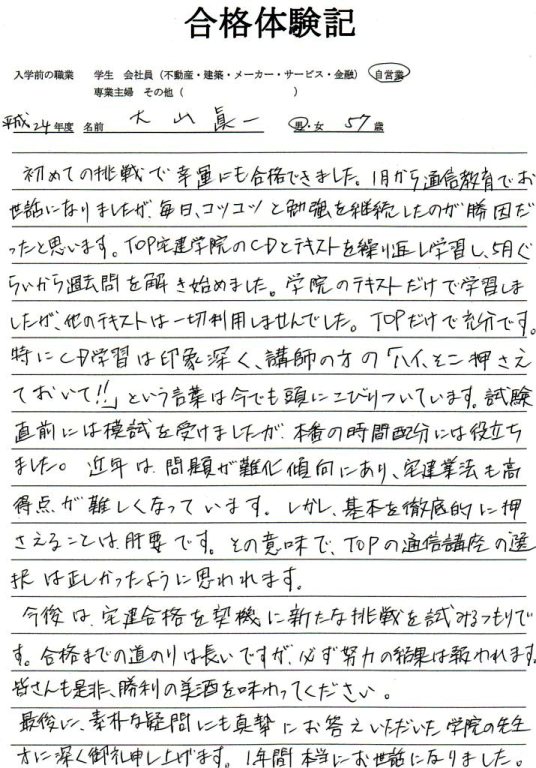 合格体験記
入学前の職業 学生 会社員(不動産・建築・メーカー・サービス・金融) 自営業
専業主婦 その他( )
平成24年度 名前 大山眞一 男・女 57歳
初めての挑戦で幸運にも合格できました。1月から通信教育でお
世話になりましたが、毎日、コツコツと勉強を継続したのが勝因だ
ったと思います。TOP宅建学院のCDとテキストを繰り返し学習し、5月ぐ
らいから過去問を解き始めました。学院のテキストだけで学習しま
したが、他のテキストは一切利用しませんでした。TOPだけで充分です。
特にCD学習は印象深く、講師の方の「ハイ、そこ押さえ
ておいて!!」という言葉は今でも頭にこびりついています。試験
直前には模試を受けましたが、本番の時間配分には役立ち
ました。近年は、問題が難化傾向にあり、宅建業法も高
得点が難しくなっています。しかし、基本を徹底的に押
さえることは、肝要です。その意味で、TOPの通信講座の選
択は正しかったように思われます。
今後は、宅建合格を契機に新たな挑戦を試みるつもりで
す。合格までの道のりは長いですが、必ず努力の結果は報われます。
皆さんも是非、勝利の美酒を味わってください。
最後に、素朴な疑問にも真摯にお答えいただいた学院の先生
方に深く御礼申し上げます。1年間本当にお世話になりました。